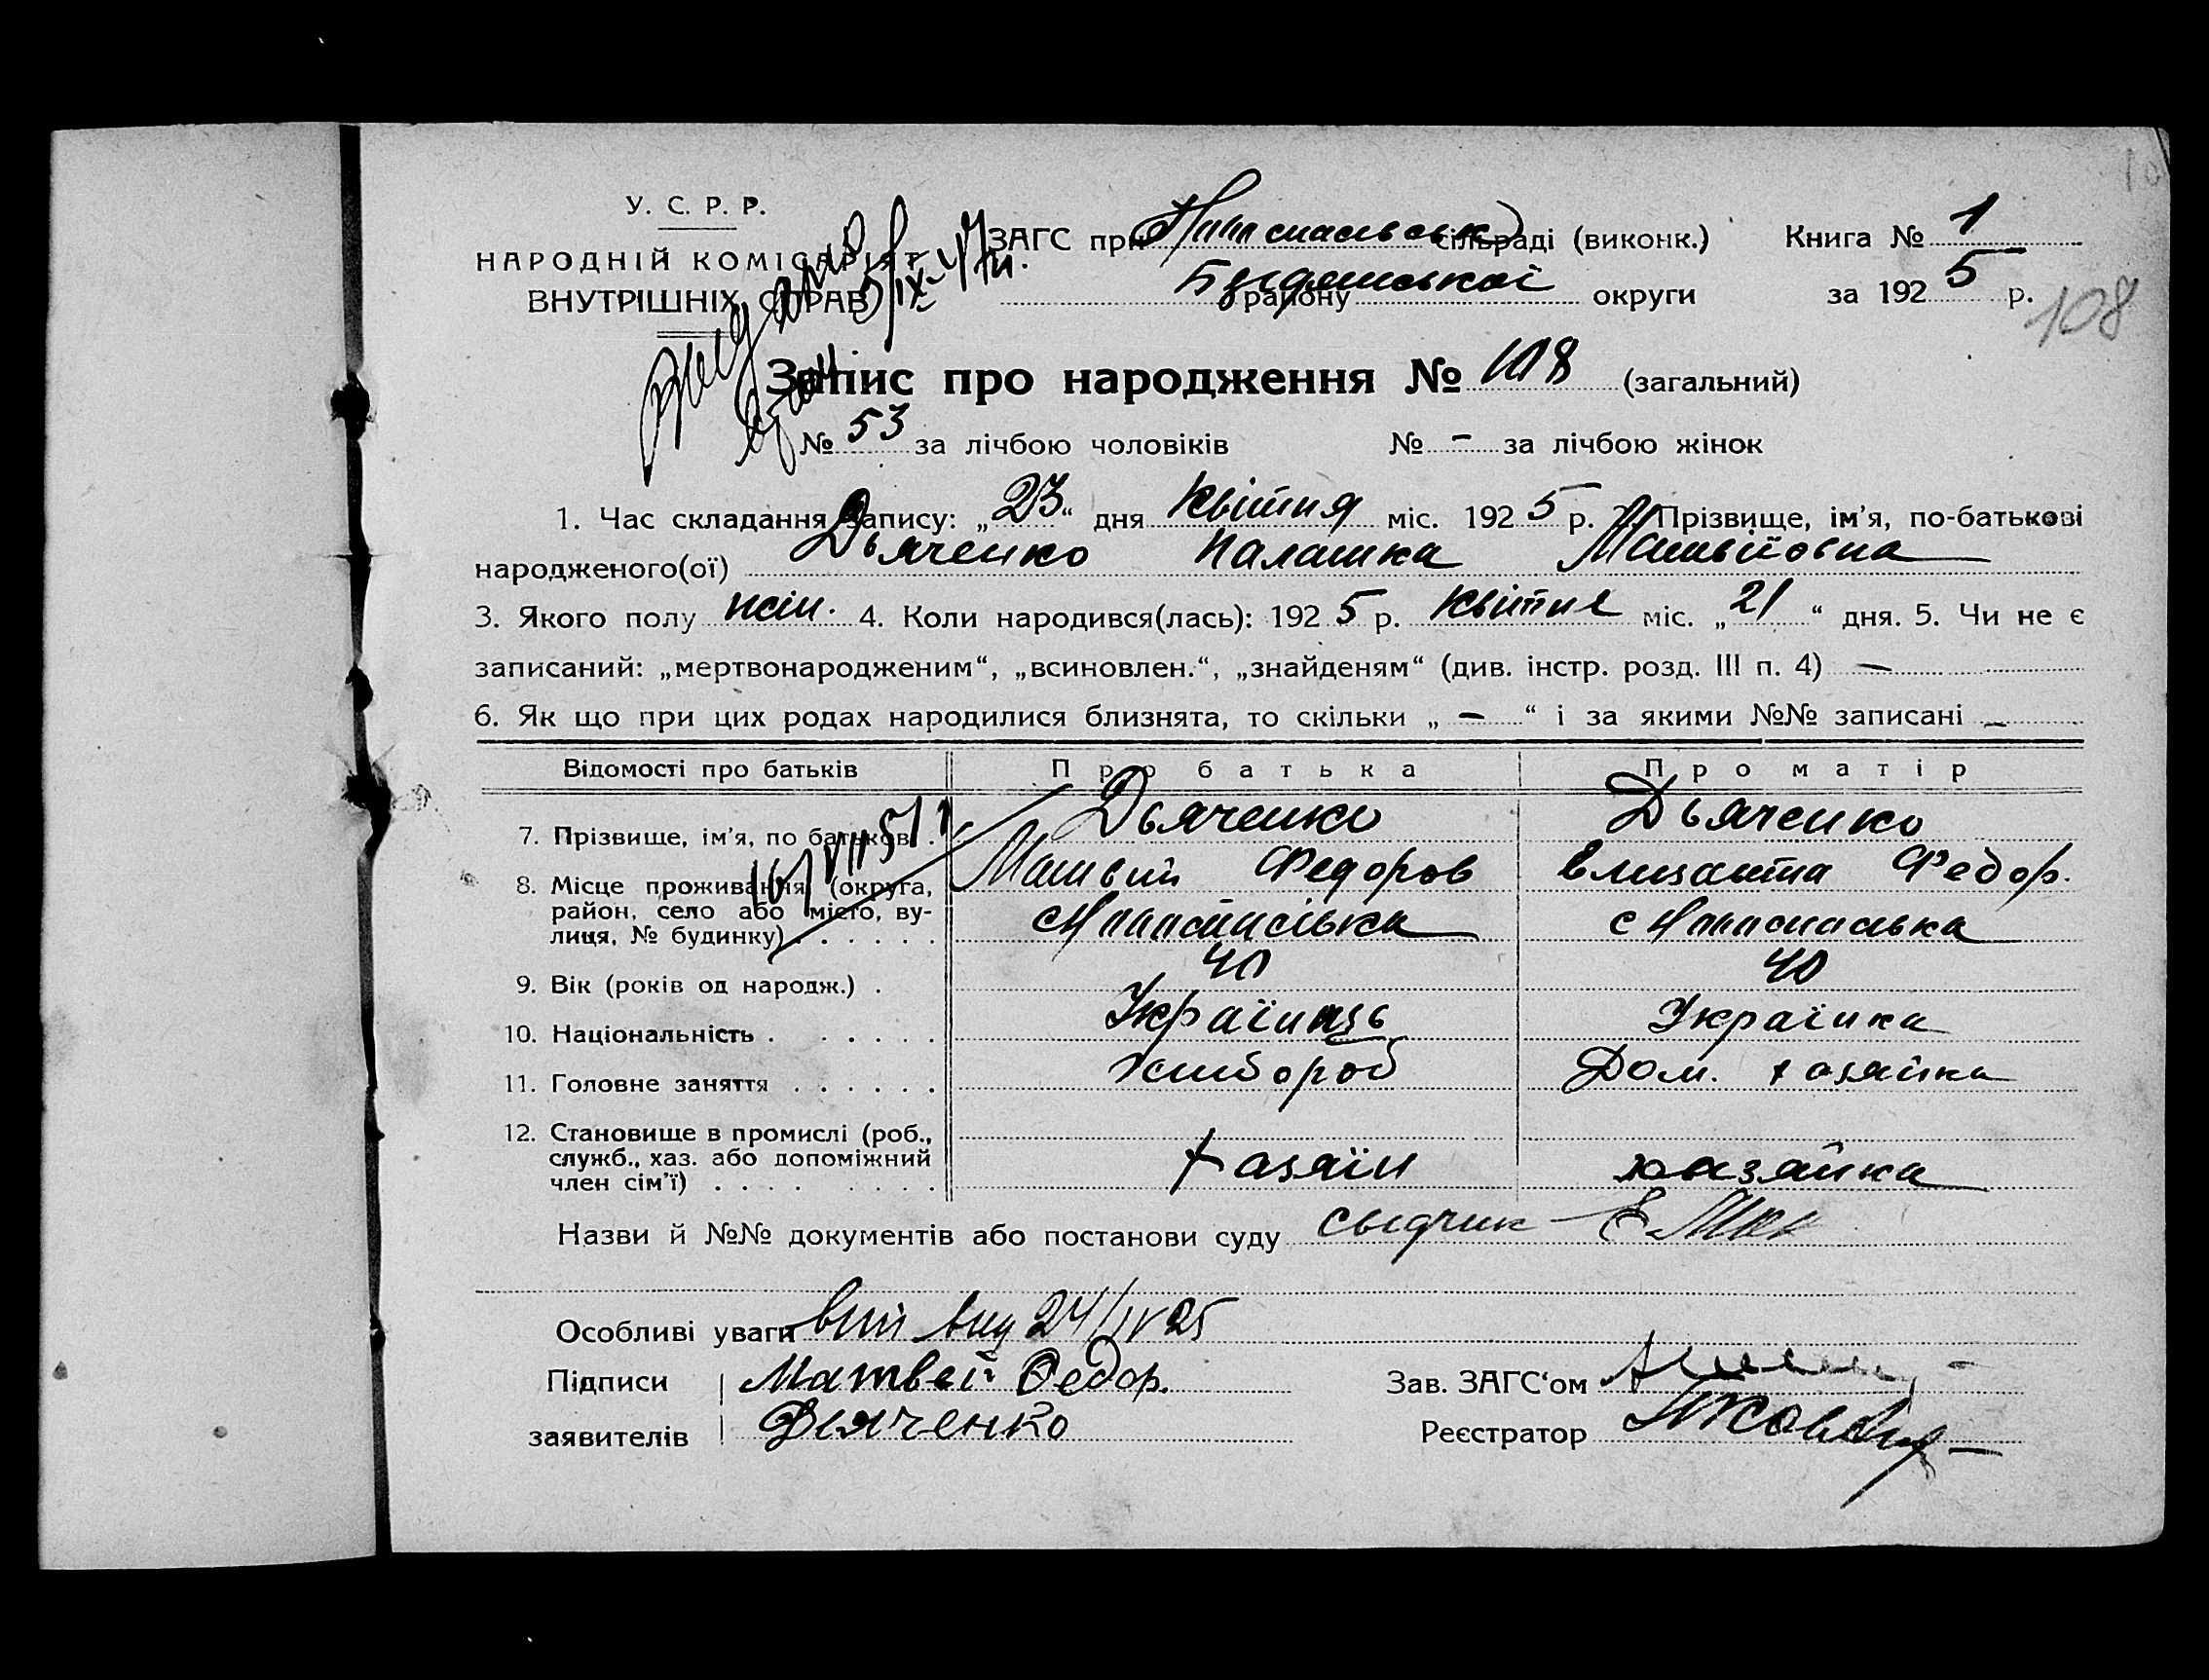 У. С. Р. Р.
НАРОДНІЙ КОМІСАРІЯТ
ВНУТРІШНІХ СПРАВ
5/IX-47
ЗАГС при сільраді (виконк.) Книга № 1
району округи за 1925 р.
108
Запис про народження № 108 (загальний)
№ 53 за лічбою чоловіків № – за лічбою жінок
1. Час складання запису: „23“ дня Квітня міс. 1925 р. 2. Прізвище, ім'я, по-батькові
народженого(ої) Дьяченко Палашка Матвіовна
3. Якого полу жін. 4. Коли народився(лась): 1925 р. Квітня міс. „21“ дня. 5. Чи не є
записаний: „мертвонародженим“, „всиновлен.“, „знайденям“ (див. інстр. розд. III п. 4) –
6. Як що при цих родах народилися близнята, то скільки „–“ і за якими №№ записані –
Відомості про батьків Про батька Про матір
7. Прізвище, ім'я, по батьков. Дьяченко Дьяченко
Матвій Федоров Федор.
8. Місце проживання (округа,
район, село або місто, ву-
лиця, № будинку)
9. Вік (років од народж.) 40 40
10. Національність Українць Українка
11. Головне заняття Хлібороб Дом. хазяйка
12. Становище в промислі (роб.,
служб., хаз. або допоміжний
член сім'ї) хазяїн хазяйка
Назви й №№ документів або постанови суду
Особливі уваги 24/IV 25
Підписи Матвей Федор. Зав. ЗАГС‘ом
заявителів Дьяченко Реєстратор